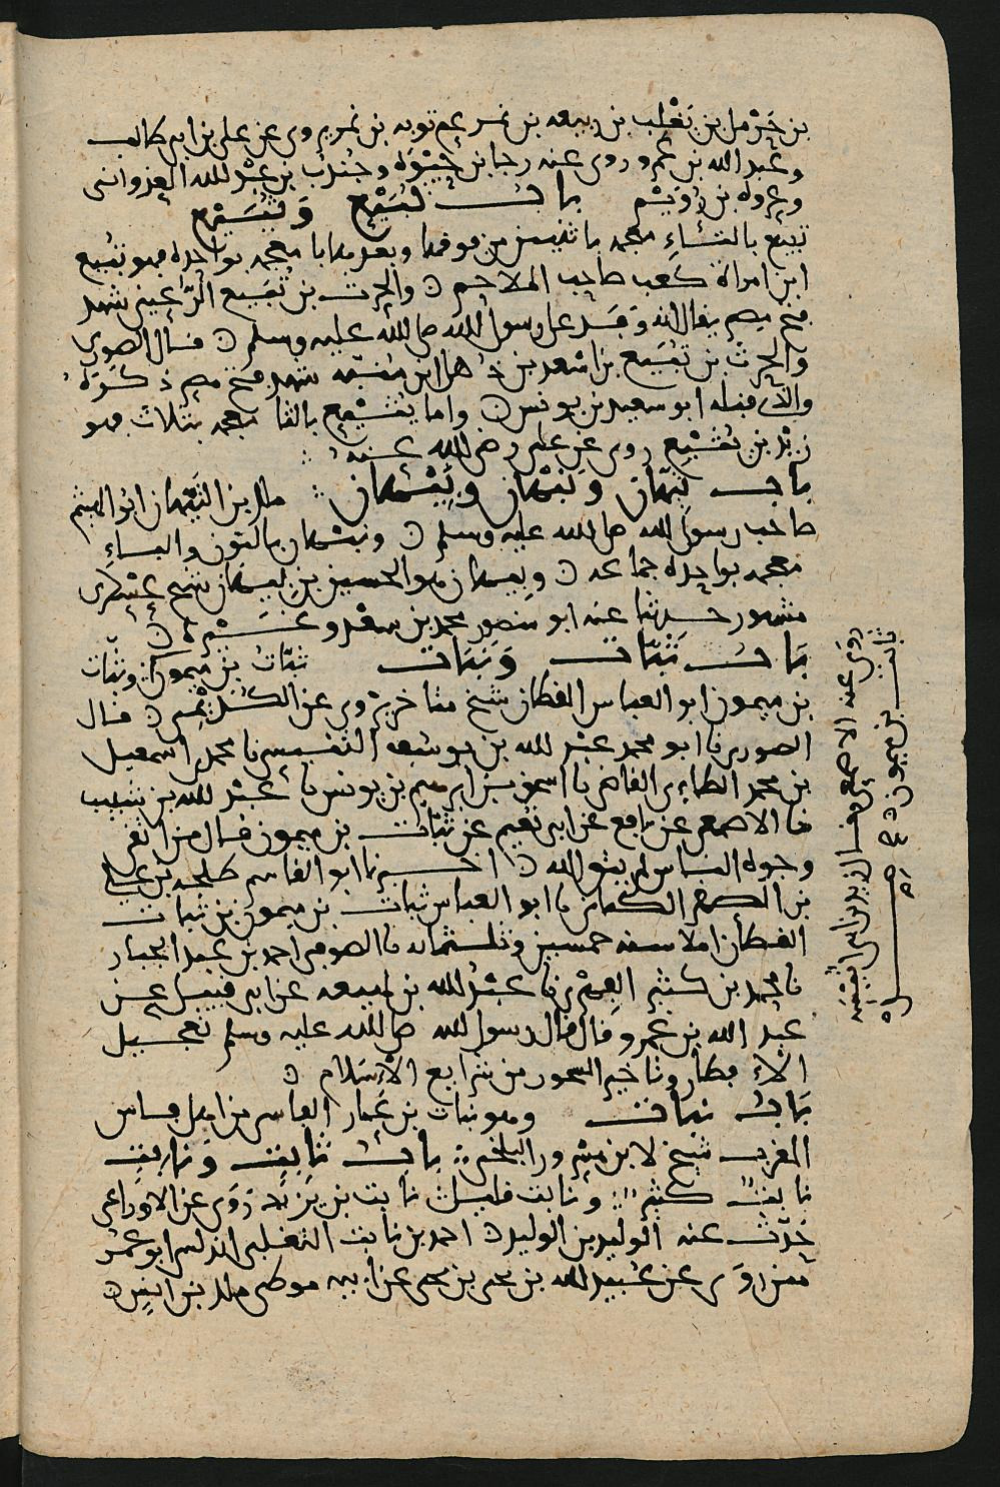 بن حرمل بن تغلب بن ربيعه بن نمر عم توبه بن نمر يروى عن على بن ابى طالب
وعبد الله بن عمرو روى عنه رجا بن حيوة وجندب بن عبد الله العدوانى
وعروه بن رويم باب تبيع ويثيع
تبيع بالتاء معجمه باثنتين من فوقها وبعدها با معجمه بواحده فهو تبيع
ابن امراة كعب صاحب الملاحم والحرث بن تبيع الرعينى شهد
فتح مصر يقال انه وفد على رسول الله صلى الله عليه وسلم قال الصورى
والحرث بن تبيع بن شهد فتح مصر
قاله ابو سعيد بن يونس واما يثيع بالثا معجمه بثلاث فهو
زيد بن يثيع روى عن على رضى الله عنه
باب تيهان ونبهان وبيهان ملك بن التيهان ابو الهيثم
صاحب رسول الله صلى الله عليه وسلم ونبهان بالنون والباء
معجمه بواحده جماعه وبيهان هو الحسين بن بيهان شيخ عسكرى
مشهور حدثنا عنه ابو منصور محمد بن سعد وغيره
باب ثبات ونبات ثبات بن ميمون وثبات
بن ميمون ابو العباس القطان شيخ متاخر يروى عن الكديمى قال
الصورى نا ابو محمد عبد الله بن يوسف النفيسى نا محمد بن اسمعيل
بن محمد الطاءى القاضى نا اسحق بن ابرهيم بن يونس نا عبد الله بن شبيب
نا الاصمعى عن نافع عن ابى نعيم عن ثبات بن ميمون قال من اتقى
وجوه الناس لم يتق الله اخبرنا ابو القاسم طلحه بن على
بن الصقر الكتانى نا ابو العباس ثبات بن ميمون بن ثبات
القطان املا سنه خمسين وثلثمائه نا الصوفى احمد بن عبد الجبار
نا محمد بن كثير الفهرى نا عبد الله بن لهيعه عن ابى قبيل عن
عبد الله بن عمرو قال قال رسول الله صلى الله عليه وسلم تعجيل
الافطار وتاخير السحور من شرايع الاسلام
باب نبات وهو نبات بن عمار الفاسى من اهل فاس
المغرب شيخ لابن مسرور البلخى باب ثابت ونابت
ثابت كثير ونابت قليل نابت بن يزيد روى عن الاوزاعى
حدث عنه الوليد بن الوليد احمد بن نابت التغلبى اندلسى ابو عمر
ممن روى عن عبيد الله بن يحيى بن يحيى عن ابيه موطى ملك بن انس
روى عنه الاصمعى وقال زيد بن ابى انيسه
ثابت بن ميمون